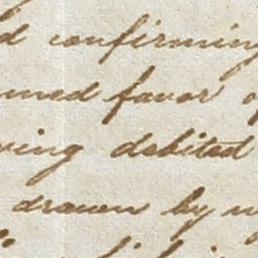 d confirming
med favor of
ving debited
drawn by m